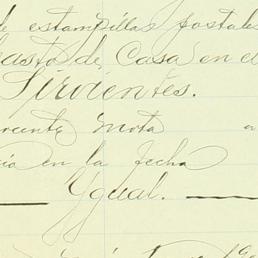 de estampillas postales
Gasto de Casa en el
Sirvientes.
Vicente Mota
en la fecha
Ygual.